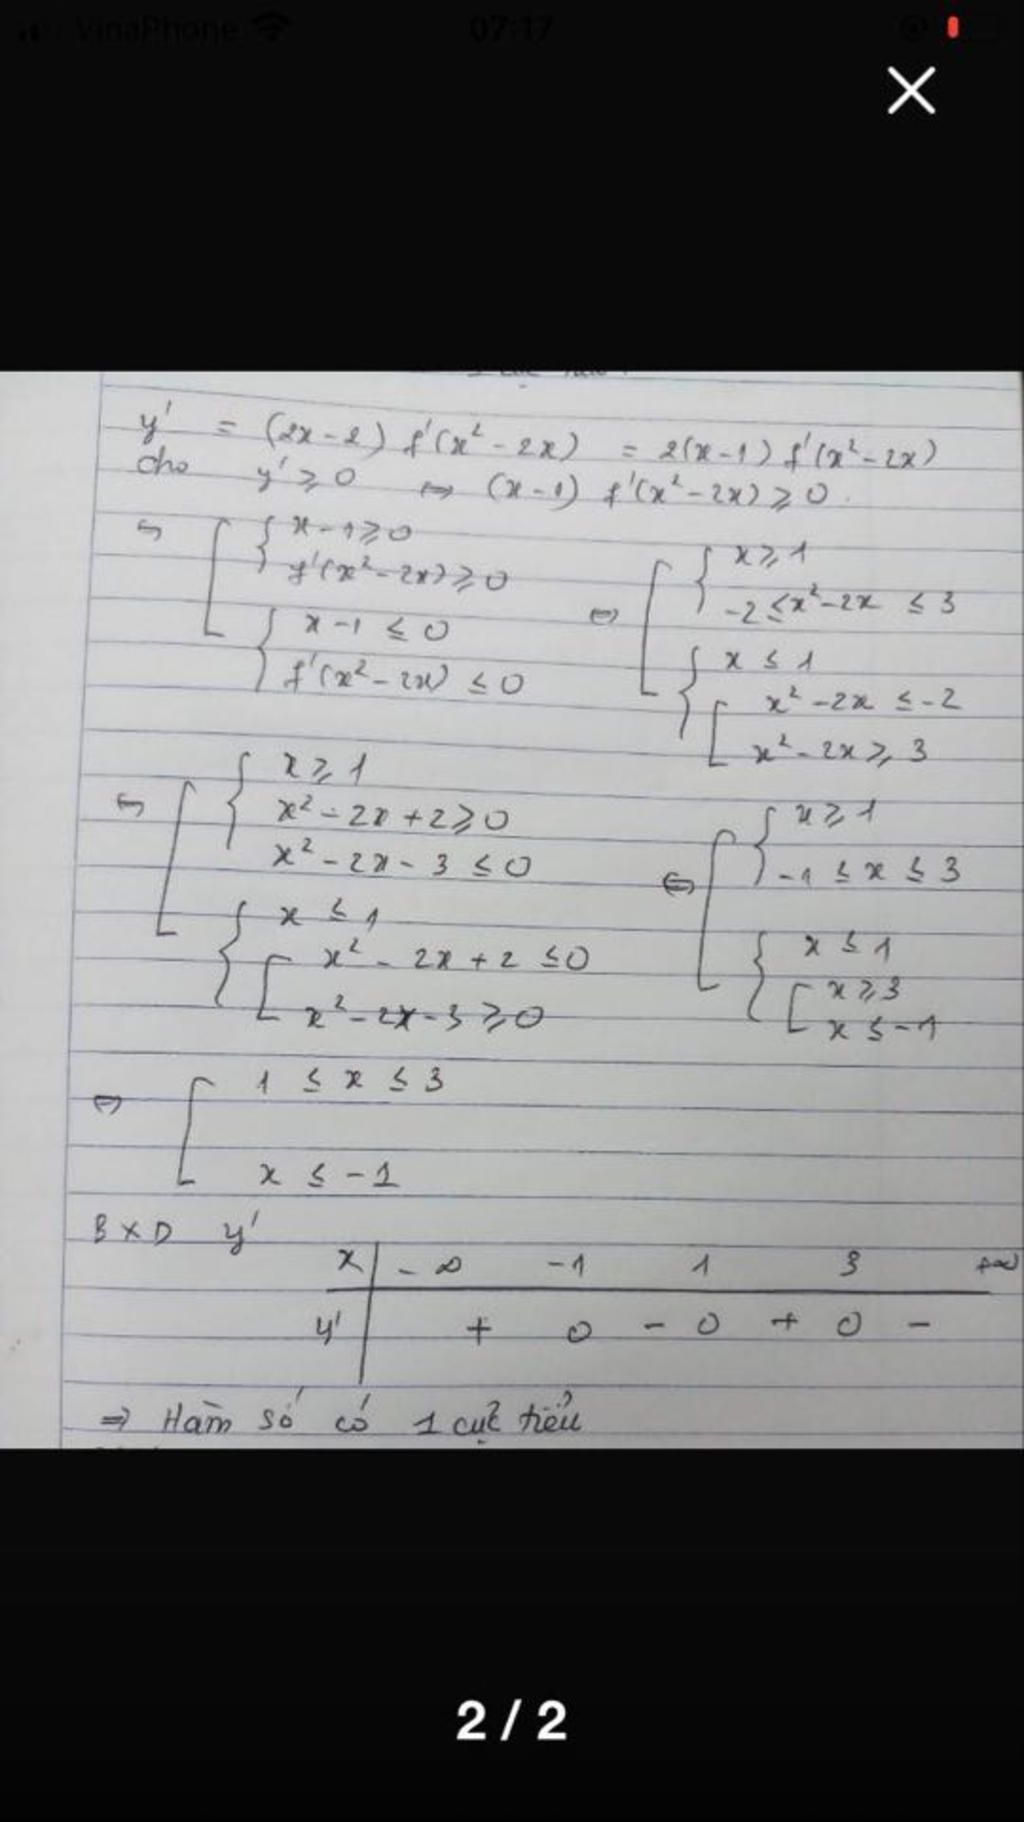 VinaPhone 07:17
y' = (2x-2) f'(x² - 2x) = 2(x-1) f'(x²-2x)
cho y' ≥ 0 ⇔ (x-1) f'(x²-2x) ≥ 0.
⇔ [ { x-1 ≥ 0
f'(x²-2x) ≥ 0
{ x-1 ≤ 0
f'(x²-2x) ≤ 0
⇔ [ { x ≥ 1
-2 ≤ x²-2x ≤ 3
{ x ≤ 1
[ x²-2x ≤ -2
x²-2x ≥ 3
⇔ [ { x ≥ 1
x²-2x+2 ≥ 0
x²-2x-3 ≤ 0
{ x ≤ 1
[ x²-2x+2 ≤ 0
x²-2x-3 ≥ 0
⇔ [ { x ≥ 1
-1 ≤ x ≤ 3
{ x ≤ 1
[ x ≥ 3
x ≤ -1
⇔ [ 1 ≤ x ≤ 3
x ≤ -1
BXD y'
x | -∞ -1 1 3 +∞
y' | + 0 - 0 + 0 -
⇒ Hàm số có 1 cực tiểu
2 / 2